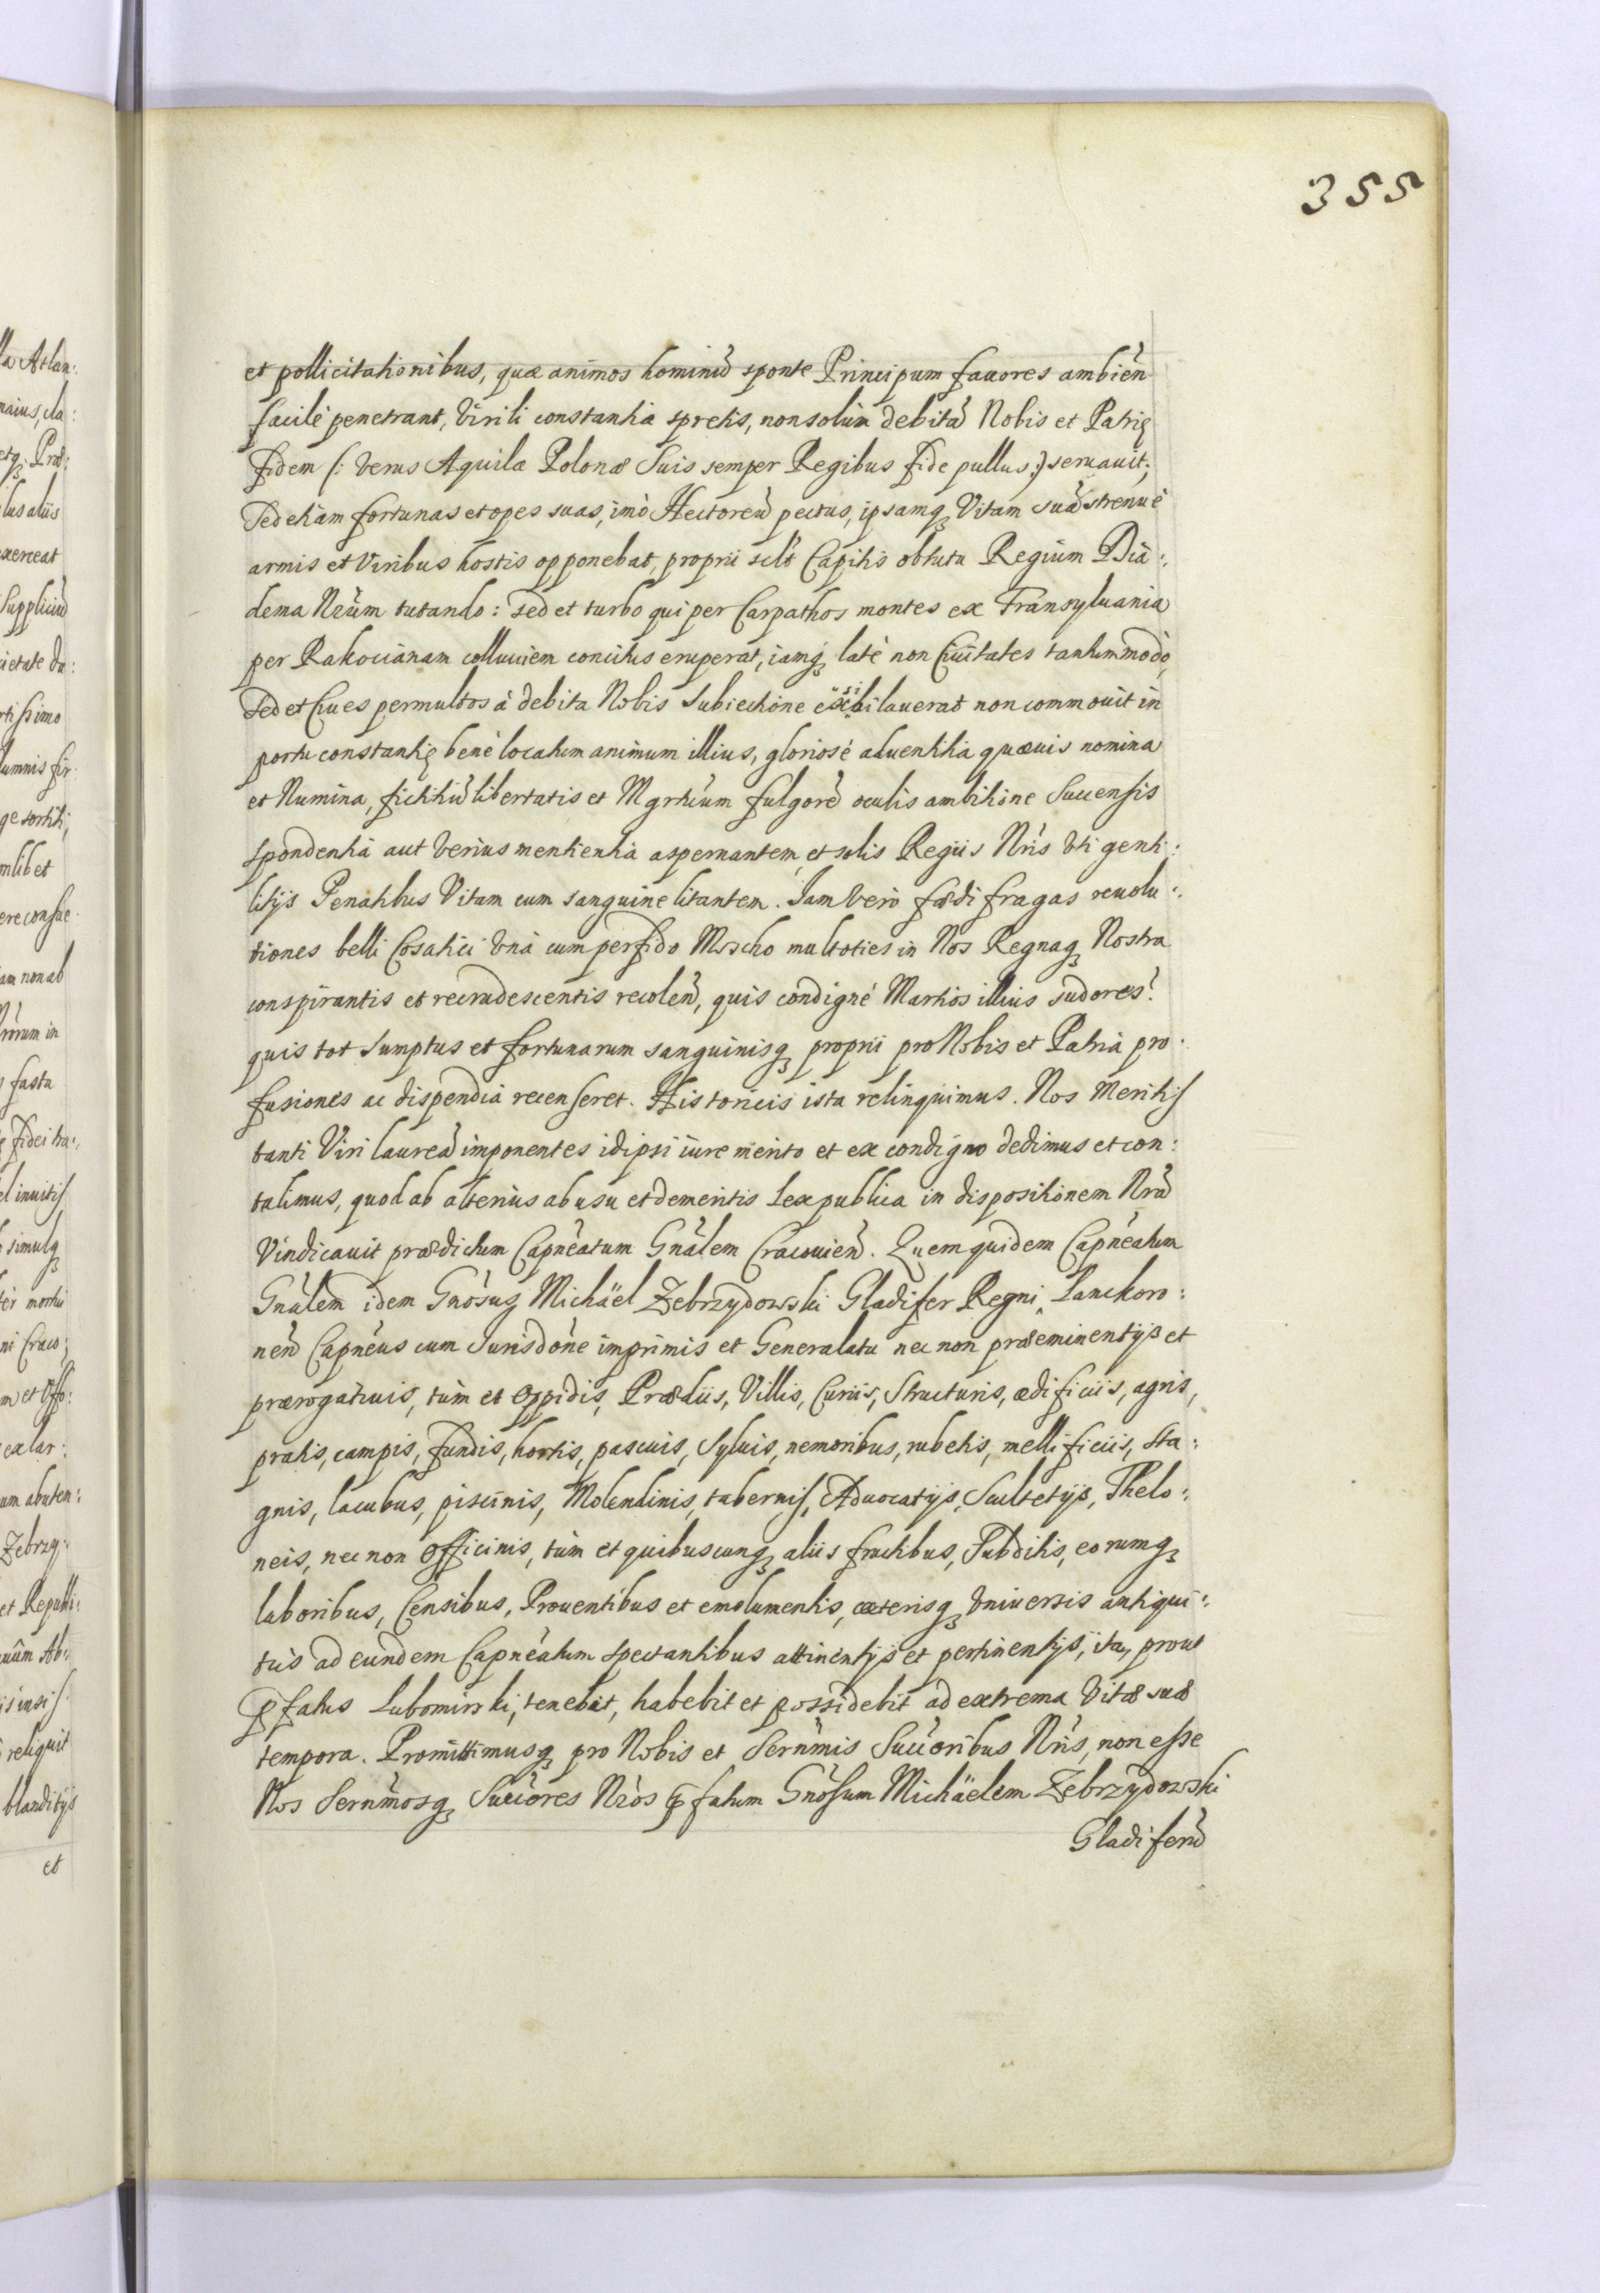 355
et pollicitationibus, quæ animos hominũ sponte Principum fauores ambień
facilè penetrant, Virili constantia spretis, non solùm debitã Nobis et Patrię
fidem (: verus Aquilæ Polonæ Suis semper Regibus fide pullus :) seruauit;
Sed etiam fortunas et opes suas, imò Hectoreũ pectus, ipsamq₃ Vitam suã strenuè
armis et viribus hostis opponebat, proprii scłt Capitis obtutu Regium Dia:
dema Nr̃um tutando: Sed et turbo qui per Carpathos montes ex Transyluania
per Rakocianam colluuiem concitus eruperat, iamq₃ latè non Ciuitates tantummodò,
Sed et Ciues permultos à debita Nobis Subiectione exsibilauerat non commouit in
portu constantię benè locatum animum illius, gloriosè aduentitia quæuis nomina
et Numina, fictitiũ libertatis et Mgrtĩcum fulgorẽ oculis ambitione Succensis
spondentia aut veriùs mentientia aspernantem, et solis Regiis Nr̃is vti genti:
litijs Penatibus Vitam cum sanguine litantem. Iam verò fœdifragas reuolu:
tiones belli Cosatici vnà cum perfido Moscho multoties in Nos Regnaq₃ Nostra
conspirantis et recrudescentis recoleñ, quis condignè Martios illius sudores?
quis tot Sumptus et fortunarum sanguinisq₃ proprii pro Nobis et Patria pro:
fusiones ac dispendia recenseret. Historicis ista relinquimus. Nos Meritis
tanti Viri laureã imponentes id ipsi iure merito et ex condigno dedimus et con:
tulimus, quod ab alterius abusu et demeritis Lex publica in dispositionem Nrã
Vindicauit prædictum Capñeatum Gñalem Cracouień. Quem quidem Capñeatum
Gñalem idem Gñosus Michäel Zebrzydowski Gladifer Regni, Lanckoro:
neñ Capñeus cum Jurisdõne imprimis et Generalatu nec non præeminentijs et
prærogatiuis, tùm et Oppidis, Prædiis, Villis, Curiis, Structuris, ædificiis, agris,
pratis, campis, fundis, hortis, pascuis, Syluis, nemoribus, rubetis, mellificiis, Sta:
gnis, lacubus, piscinis, Molendinis, tabernis, Aduocatijs, Scultetijs, Thelo:
neis, nec non Officinis, tùm et quibuscunq₃ aliis fructibus, Subditis, eorumq₃
laboribus, Censibus, Prouentibus et emolumentis, cæterisq₃ vniuersis antiqui:
tùs ad eundem Capñeatum spectantibus attinentijs et pertinentijs, ita, prout
p̃fatus Lubomirski, tenebat, habebit et possidebit ad extrema Vitæ suæ
tempora. Promittimusq₃ pro Nobis et Serñmis Succ̃oribus Nr̃is, non esse
Nos Serñmosq₃ Succ̃ores Nr̃os p̃fatum Gñosum Michäelem Zebrzydowski
Gladiferũ